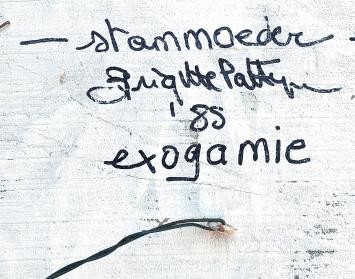 — stammoeder —
Brigitte Pattyn
'85
exogamie